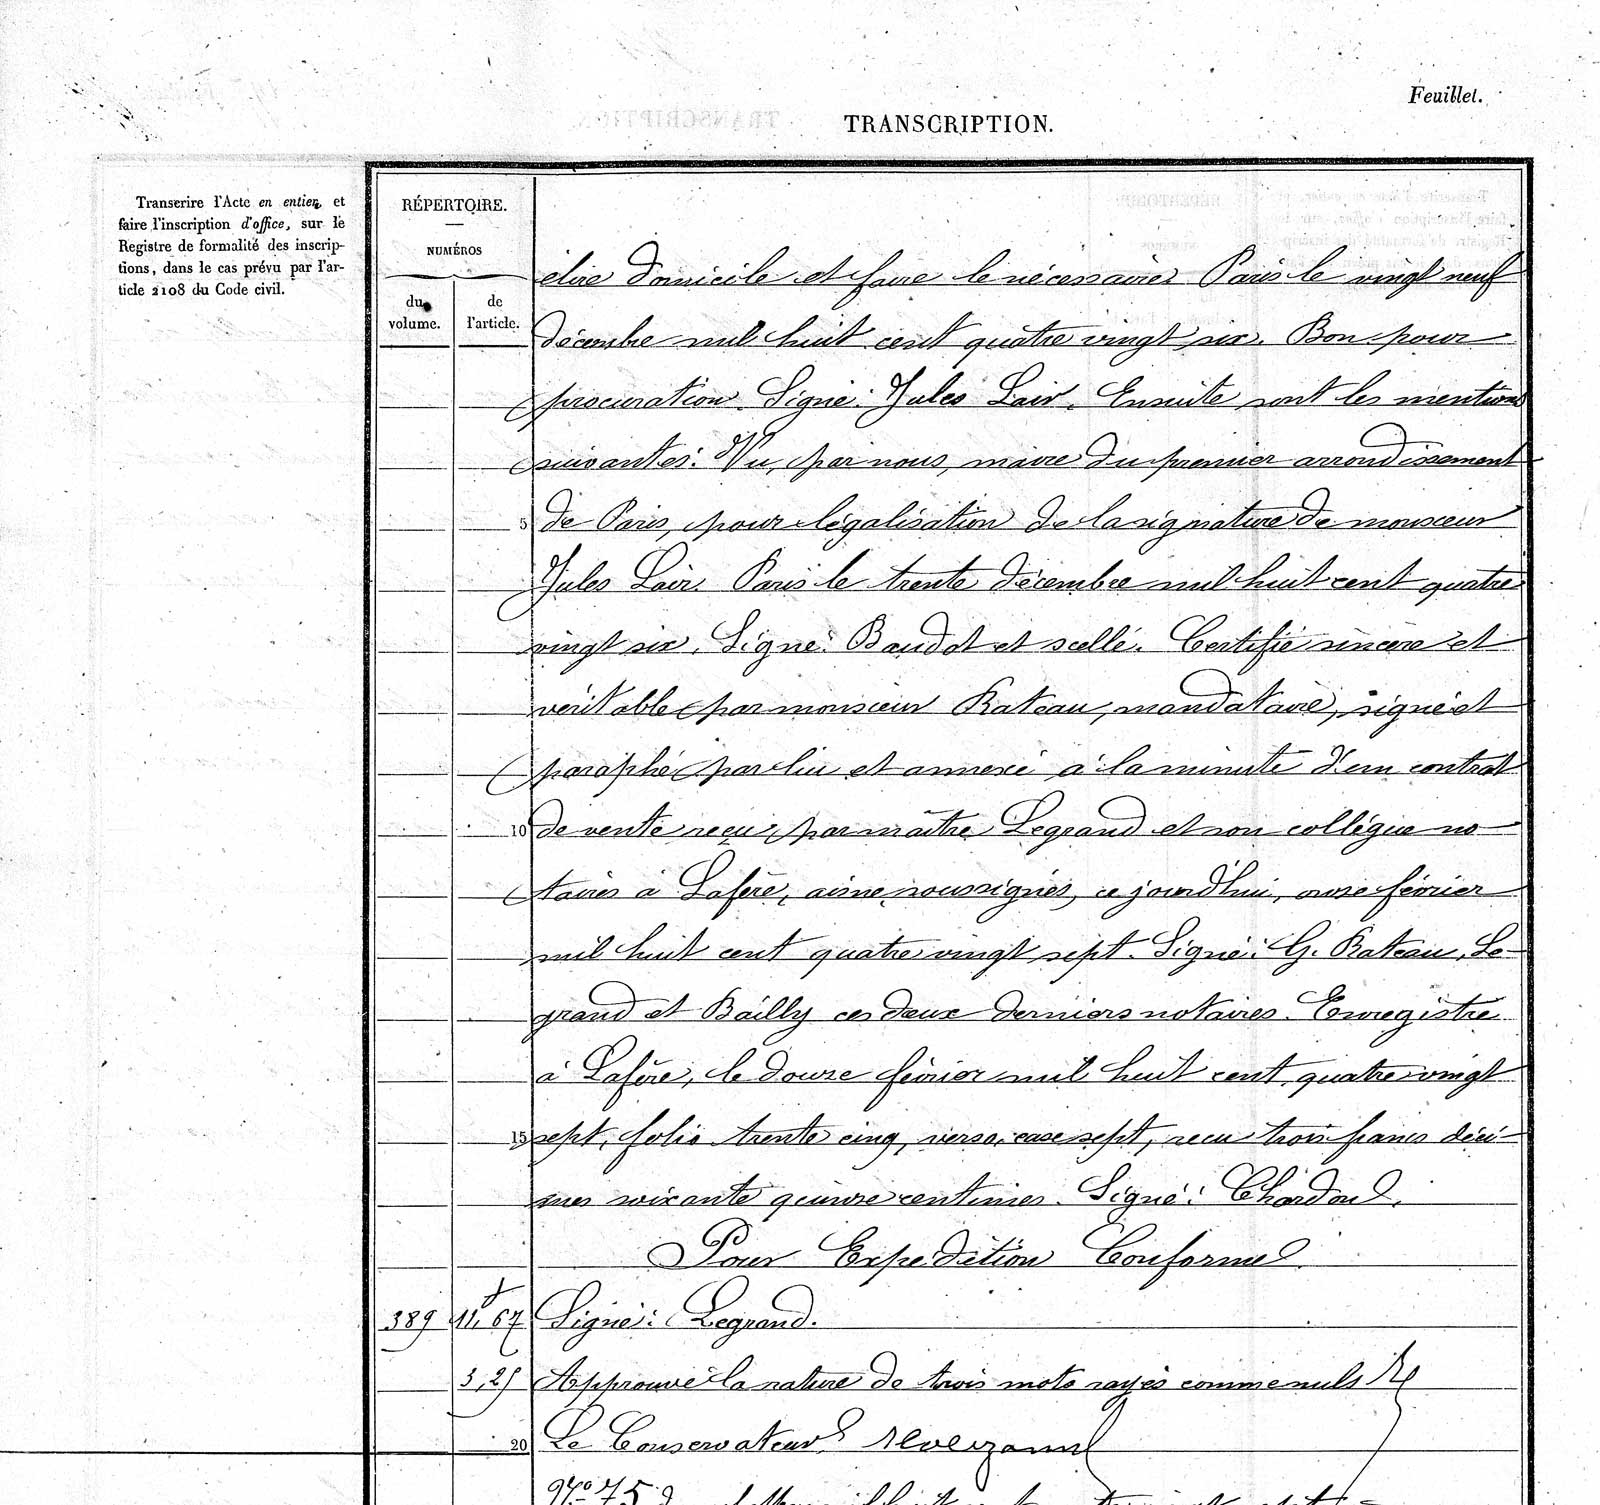 Feuillet.
TRANSCRIPTION.
Transcrire l'Acte en entier, et
faire l'inscription d'office, sur le
Registre de formalité des inscrip-
tions, dans le cas prévu par l'ar-
ticle 2108 du Code civil.
RÉPERTOIRE.
NUMÉROS
du volume.
de l'article.
élire domicile et faire le nécessaire. Paris le vingt neuf
décembre mil huit cent quatre vingt six. Bon pour
procuration. Signé: Jules Lair. Ensuite sont les mentions
suivantes: Vu, par nous, maire du premier arrondissement
5 de Paris, pour légalisation de la signature de monsieur
Jules Lair. Paris le trente décembre mil huit cent quatre
vingt six. Signé: Baudot et scellé. Certifié sincère et
véritable par monsieur Rateau, mandataire, signé et
paraphé par lui et annexé à la minute d'un contrat
10 de vente reçu par maître Legrand et son collègue no-
taires à Lafère, aisne soussignés, ce jourd'hui, onze février
mil huit cent quatre vingt sept. Signé: G. Rateau, Le-
grand et Bailly ces deux derniers notaires. Enregistré
à Lafère, le douze février mil huit cent quatre vingt
15 sept, folio trente cinq, verso, case sept, reçu trois francs déci-
mes soixante quinze centimes. Signé: Chardon.
Pour Expédition Conforme
389 11,67 Signé: Legrand.
3,25 Approuvé la rature de trois mots rayés comme nuls
20 Le Conservateur
N° 75